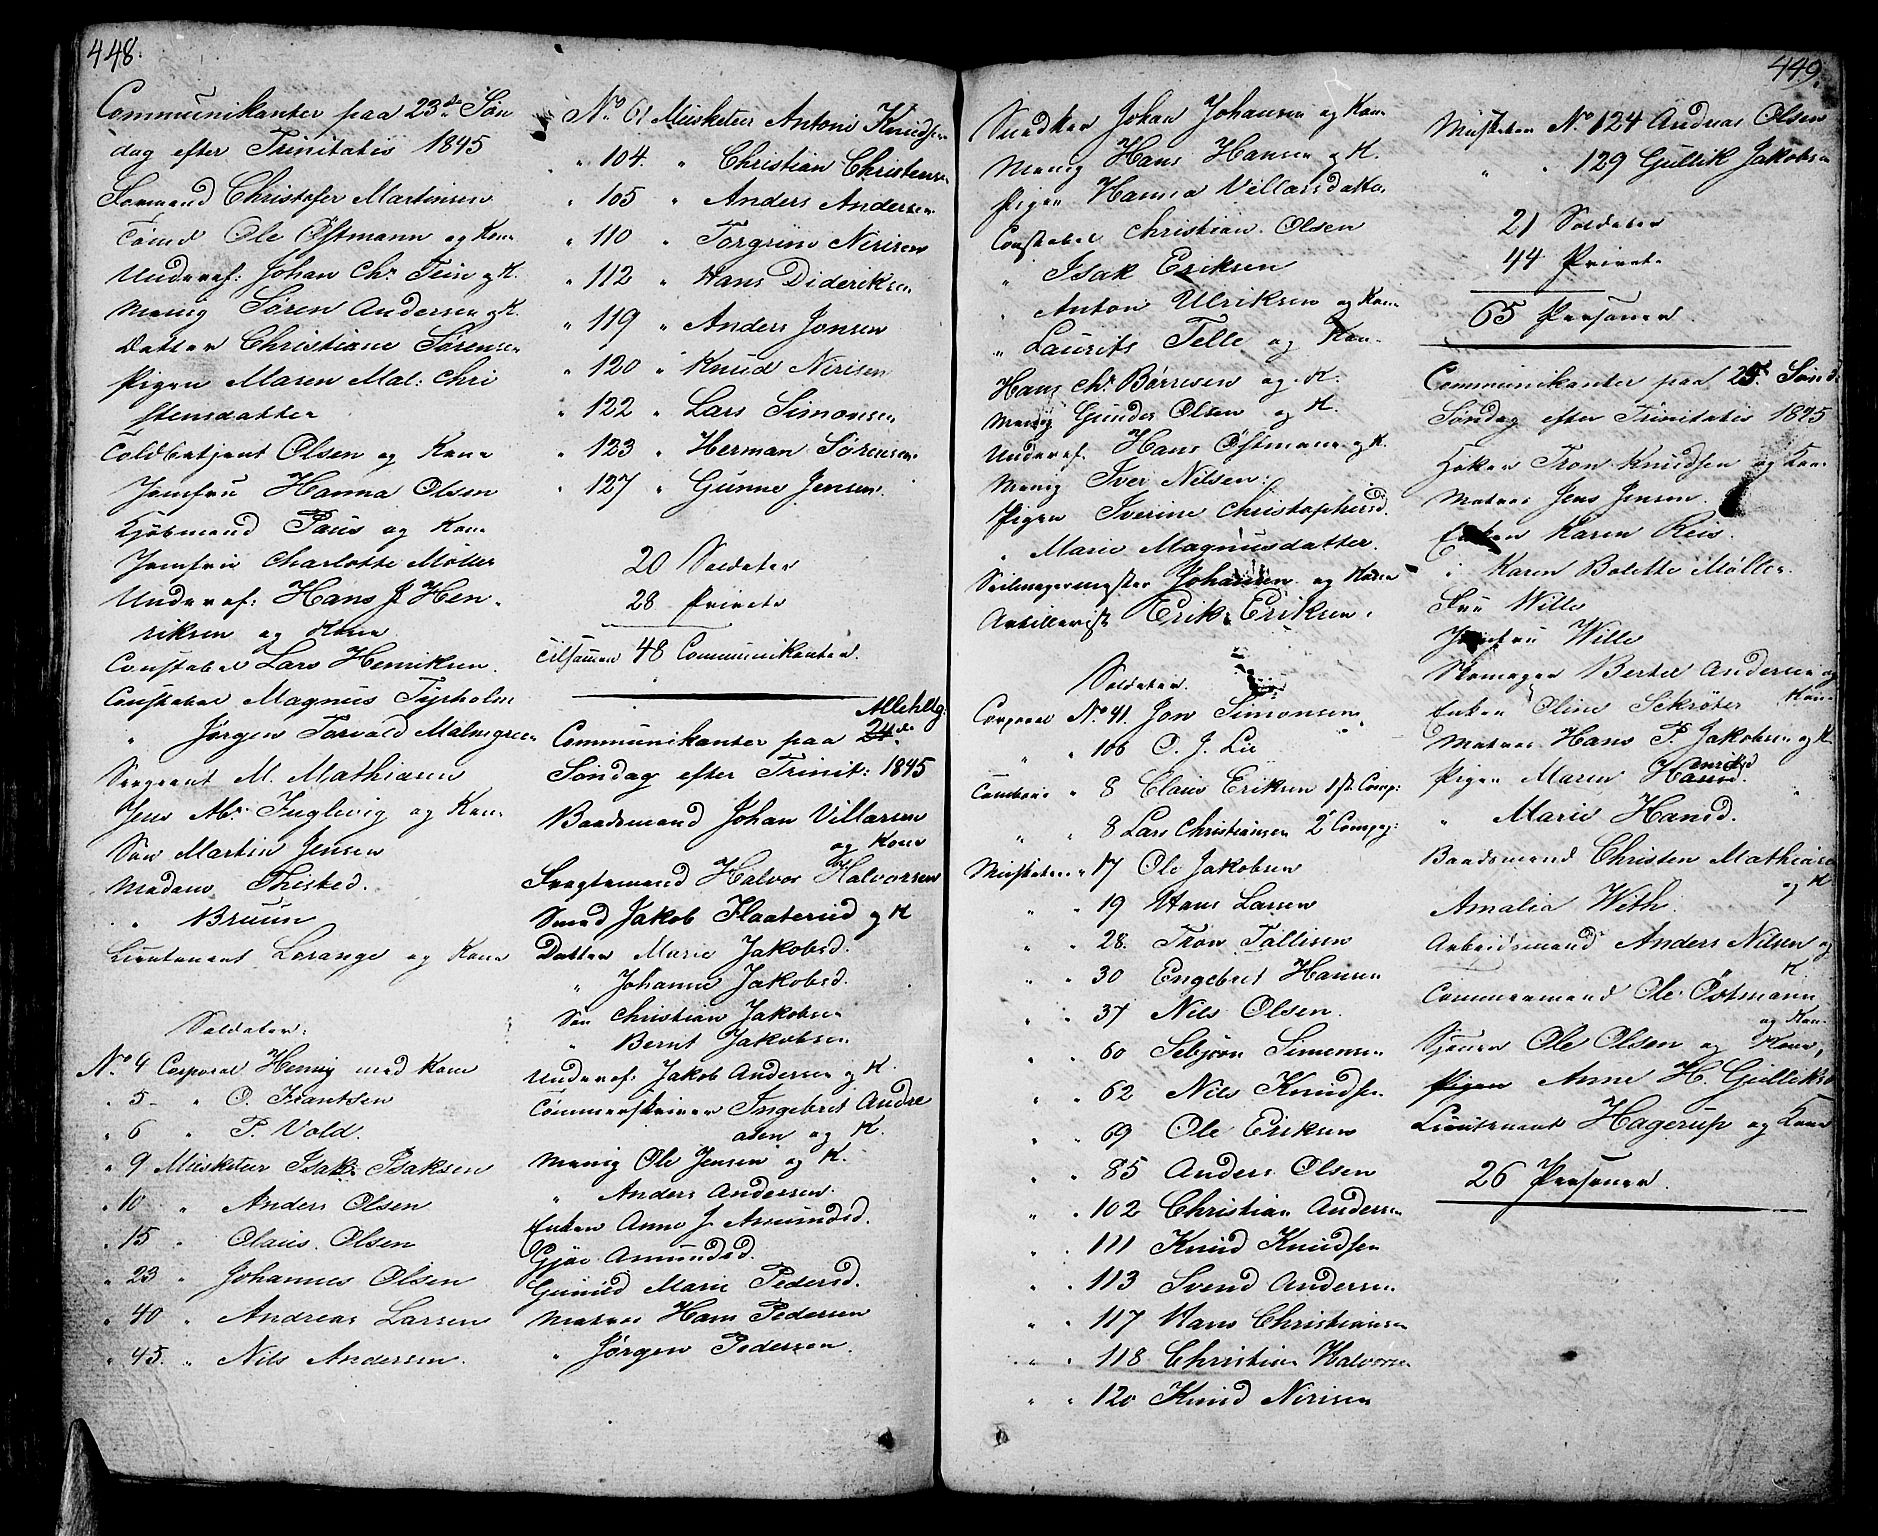 448.
Communikanter paa 23de Søn
dag efter Trinitatis 1845
Formand Christofer Martinsen
Tømd Ole Østmann og Kone
Underof: Johan Chr. Teie og K.
Menig Søren Andersen og K.
Datter Christiane Sørensen
Pigen Maren Mal: Chri
stensdatter
Toldbetjent Olsen og Kone
Jomfru Hanna Olsen
Kjøbmand Paus og Kone
Jomfru Charlotte Møller
Underof: Hans J. Hen
riksen og Kone
Constabel Lars Henriksen.
Constabel Magnus Tyrholm
" Jørgen Torvald Malmgren
Sergeant M. Mathiasen
Jens Ab. Fuglevig og Kone
Søn Martin Jensen
Madam Thisted.
" Bruun
Lieutenant Lorange og Kone
Soldater:
No 4 Corporal Hennig med Kone
" 5 " O. Frantsen
" 6 " P. Vold.
" 9 Musketeer Isak Isaksen
" 10 " Anders Olsen
" 15 " Olaus Olsen
" 23 " Johannes Olsen
" 40 " Andreas Larsen
" 45. " Nils Andersen.
No 61 Musketeer Antoni Knudsen
" 104. " Christian Christensen
" 105 " Anders Andersen
" 110 " Torgrim Nirisen
" 112 " Hans Dideriksen
" 119 " Anders Jonsen
" 120 " Knud Nirisen
" 122 " Lars Simonsen
" 123 " Herman Sørensen
" 127 " Gunne Jensen.
20 Soldater
28 Private
tilsamen 48 Communikanter.
Allehlg:
Communikanter paa 24de
Søndag efter Trinit: 1845
Baadsmand Johan Villarsen
og Kone
Fragtemand Halvor Halvorsen
Smed Jakob Flaaterud og K
Datter Marie Jakobsd.
" Johanne Jakobsd.
Søn Christian Jakobsen
" Bernt Jakobsen
Underof: Jakob Andersen og K.
Tømmerskriver Ingebret Andre
asen og K.
Menig Ole Jensen og K.
" Anders Andersen.
Enken Anne J. Amundsd.
Gjøe Amundsd.
Gunild Marie Pedersd.
Matros Hans Pedersen
" Jørgen Pedersen.
449.
Snedker Johan Johansen og Kone
Menig Hans Hansen og K.
Pigen Hanna Villarsdatter
Constabel Christian Olsen
" Isak Eriksen
" Anton Ulriksen og Kone
" Laurits Telle og Kone.
Hans Chr. Børresen og K.
Menig Gunder Olsen og K.
Underof. Hans Østmann og K.
Menig Iver Nilsen.
Pigen Iverine Christophersd.
" Marie Magnusdatter.
Seilmagermester Johansen og Kone
Artillerist Erik Eriksen.
Soldater.
Corporal No 41. Jon Simonsen
" " 106 O. J. Lie
Tambour " 8 Claus Eriksen 1st Comp:
" " 8 Lars Christiansen 2 Compag:
Musketeer " 17 Ole Jakobsen
" " 19 Hans Larsen
" " 28. Tron Tallisen
" " 30 Engebret Hansen
" " 37 Nils Olsen.
" " 60 Sebjørn Simensen
" " 62 Nils Knudsen
" " 69 Ole Eriksen
" " 85 Anders Olsen
" " 102 Christian Andersen
" " 111 Knud Knudsen
" " 113 Svend Andersen
" " 117 Hans Christiansen
" " 118 Christian Halvorsen
" " 120 Knud Nirisen
Musketeer No 124 Andreas Olsen
" " 129 Gullik Jakobsen
21 Soldater
44 Private
65 Personer.
Communikanter paa 25. Sønd
Søndag efter Trinitatis 1845
Høker Tron Knudsen og Kone
Matros Jens Jensen.
Enken Karen Reis.
" Karen Bolette Møller.
Fru Wille
Jomfru Wille
Skomager Berter Andersen og
Kone
Enken Oline Schrøter
Matros Hans P. Jakobsen og K
Pigen Maren Hansd.
" Marie Hansd.
Baadsmand Christen Mathiasen
og K
Amalia Weth.
Arbeidsmand Anders Nilsen og
K
Tømmermand Ole Østmann
og Kone
Sjouer Ole Olsen og Kone,
Pigen Anne H. Gulliksd
Lieutenant Hagerup og Kone
26 Personer.